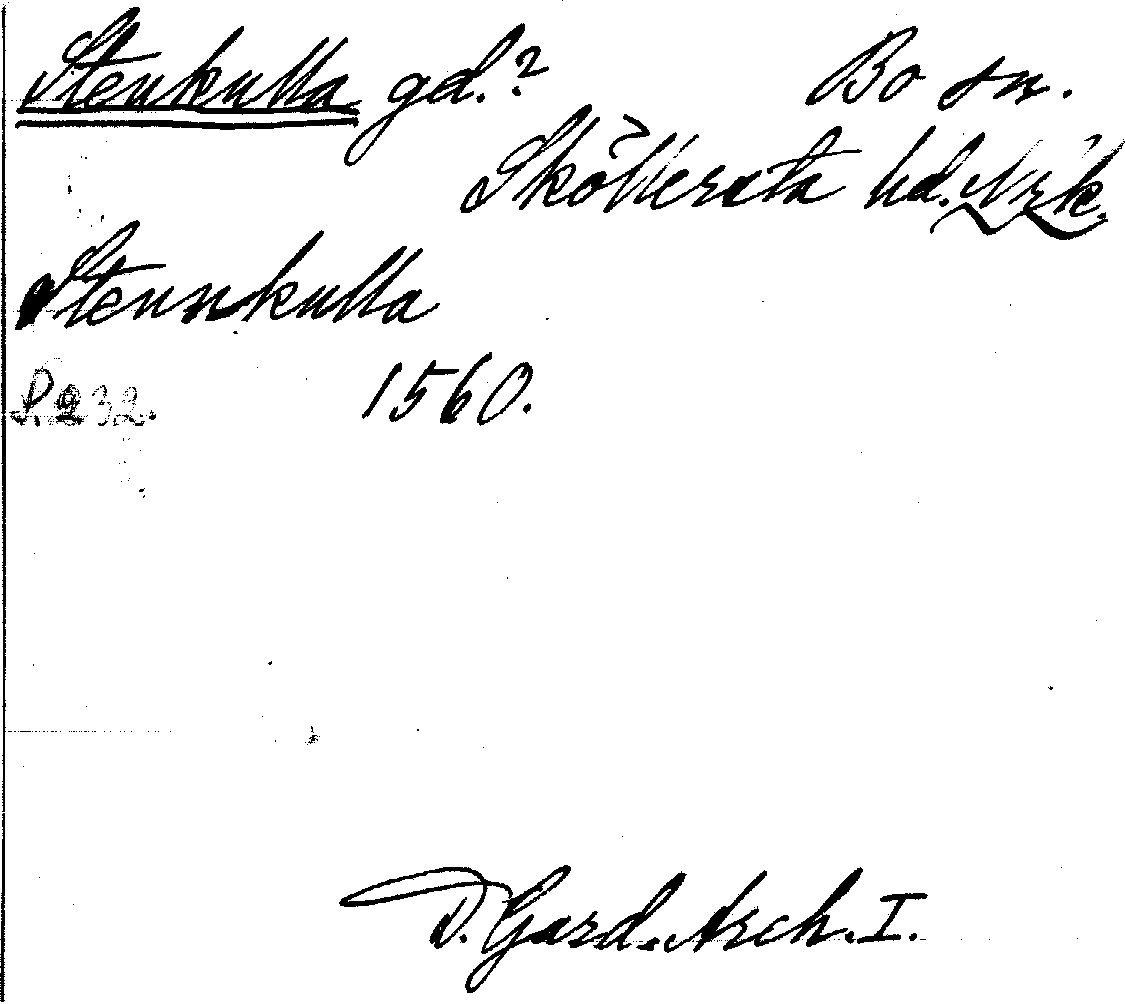 Stenkulla gd.? Bo sn.
Sköllersta hd. Nrk.
Stennkulla
S. 232. 1560.
D. Gard. Arch. I.